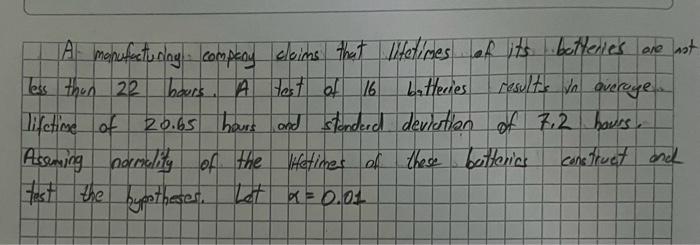 A manufacturing company claims that lifetimes of its batteries are not
less than 22 hours. A test of 16 batteries results in average
lifetime of 20.65 hours and standard deviation of 7.2 hours.
Assuming normality of the lifetimes of these batteries construct and
test the hypotheses. Let α = 0.01